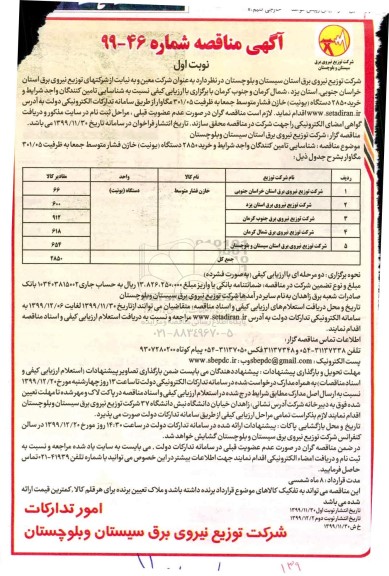 آگهی مناقصه شماره ۴۶-۹۹
نوبت اول
شرکت توزیع نیروی برق
سیستان و بلوچستان
شرکت توزیع نیروی برق استان سیستان و بلوچستان در نظر دارد به عنوان شرکت معین و به نیابت از شرکتهای توزیع نیروی برق استان
خراسان جنوبی، استان یزد، شمال کرمان و جنوب کرمان با برگزاری با ارزیابی کیفی نسبت به شناسایی تامین کنندگان واجد شرایط و
خرید ۲۸۵۰ دستگاه (یونیت) خازن فشار متوسط جمعا به ظرفیت ۳۰۱/۰۵ مگاوار از طریق سامانه تدارکات الکترونیکی دولت به آدرس
www.setadiran.ir اقدام نماید. لازم است مناقصه گران در صورت عدم عضویت قبلی، مراحل ثبت نام در سایت مذکور و دریافت
گواهی امضای الکترونیکی را جهت شرکت در مناقصه محقق سازند. تاریخ انتشار فراخوان در سامانه تاریخ ۱۳۹۹/۱۱/۳۰ می باشد.
مناقصه گزار: شرکت توزیع نیروی برق استان سیستان و بلوچستان
موضوع مناقصه: شناسایی تامین کنندگان واجد شرایط و خرید ۲۸۵۰ دستگاه (یونیت) خازن فشار متوسط جمعا به ظرفیت ۳۰۱/۰۵
مگاوار بشرح جدول ذیل:
ردیف نام شرکت توزیع نام کالا واحد مقادیر کالا
۱ شرکت توزیع نیروی برق استان خراسان جنوبی خازن فشار متوسط دستگاه (یونیت) ۶۶
۲ شرکت توزیع نیروی برق استان یزد ۶۰۰
۳ شرکت توزیع نیروی برق جنوب کرمان ۹۱۲
۴ شرکت توزیع نیروی برق شمال کرمان ۶۱۸
۵ شرکت توزیع نیروی برق استان سیستان و بلوچستان ۶۵۴
جمع کل ۲۸۵۰
نحوه برگزاری: دو مرحله ای با ارزیابی کیفی (به صورت فشرده)
مبلغ و نوع تضمین شرکت در مناقصه: ضمانتنامه بانکی یا واریز مبلغ ۱۳,۸۲۶,۲۵۰,۰۰۰ ریال به حساب جاری ۱۰۳۴۰۳۸۱۵۰۰۲ بانک
صادرات شعبه برق زاهدان به نام سایر درآمدها شرکت توزیع نیروی برق سیستان و بلوچستان
تاریخ و محل دریافت استعلام های ارزیابی کیفی و اسناد مناقصه: متقاضیان می توانند از تاریخ ۱۳۹۹/۱۱/۳۰ لغایت ۱۳۹۹/۱۲/۰۶ به
سامانه تدارکات الکترونیکی دولت به آدرس www.setadiran.ir مراجعه و نسبت به دریافت استعلام ارزیابی کیفی و اسناد مناقصه
اقدام نمایند.
اطلاعات تماس مناقصه گزار:
تلفن ۳۱۱۳۷۳۳۸-۰۵۴ و ۳۱۱۳۷۳۴۸ فکس ۳۱۱۳۷۰۵۰-۰۵۴ پیام کوتاه ۹۳۰۷۲۸۰۲۰۰۰
پست الکترونیک: obepdc@gmail.com وب: www.sbepdc.ir
مهلت تحویل و بارگذاری پیشنهادات: پیشنهاددهندگان می بایست ضمن بارگذاری تصاویر پیشنهادات (استعلام ارزیابی کیفی و
اسناد مناقصات) به همراه مدارک درخواست شده در سامانه تدارکات الکترونیکی دولت تا ساعت ۱۳ روز چهارشنبه مورخ ۱۳۹۹/۱۲/۲۰
نسبت به ارسال اصل مدارک مطابق شرایط درج شده در استعلام ارزیابی کیفی و اسناد مناقصه در پاکت لاک و مهر شده تا مهلت تعیین
شده فوق به دبیرخانه شرکت آدرس نشانی: زاهدان خیابان دانشگاه نبش دانشگاه ۳۷ شرکت توزیع نیروی برق سیستان و بلوچستان
اقدام نمایند لازم بذکر است تمامی مراحل ارزیابی کیفی از طریق سامانه تدارکات دولت صورت می پذیرد.
تاریخ و محل بازگشایی پاکات: پیشنهادات ارائه شده در سامانه تدارکات دولت در ساعت ۱۴:۳۰ روز مورخ ۱۳۹۹/۱۲/۲۰ در سالن
کنفرانس شرکت توزیع نیروی برق سیستان و بلوچستان گشایش خواهد شد.
در ضمن مناقصه گران در صورت عدم عضویت قبلی در سامانه تدارکات دولت، می بایست به سایت یاد شده مراجعه و نسبت به
ثبت نام و دریافت امضاء الکترونیکی اقدام نمایند جهت اطلاعات بیشتر در این خصوص می توانید با شماره تلفن ۴۱۹۳۴-۰۲۱ تماس
حاصل فرمایید.
مدت قرارداد: ۸ ماه شمسی
این مناقصه می تواند به تفکیک کالاهای موضوع قرارداد برنده داشته باشد و ملاک تعیین برنده برای هر قلم کالا، کمترین قیمت ارائه
شده می باشد
تاریخ انتشار نوبت اول ۱۳۹۹/۱۱/۳۰
تاریخ انتشار نوبت دوم ۱۳۹۹/۱۲/۲
خ ش ۱۳۹۹/۱۱/۳۰
امور تدارکات
شرکت توزیع نیروی برق سیستان و بلوچستان